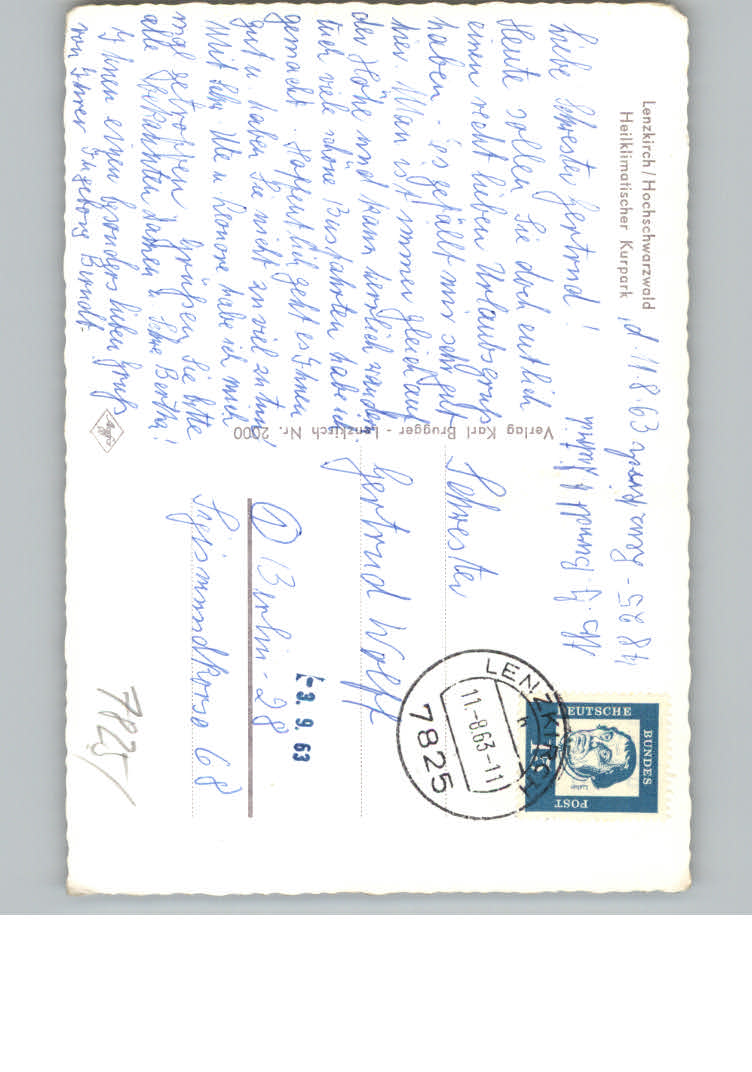 Lenzkirch/Hochschwarzwald
Heilklimatischer Kurpark
d. 11.8.63
Liebe Schwester Gertrud!
Heute sollen Sie doch entlich
einen recht lieben Urlaubsgruß
haben - Es gefällt mir sehr gut
hier. Man ist immer gleich auf
der Höhe und kann herrlich wandern
auch viele schöne Busfahrten habe ich
gemacht. Hoffentlich geht es Ihnen
gut u. haben Sie nicht zu viel zu tun,
Mit Schw. Ute u. Leonore habe ich mich
mal getroffen. Grüßen Sie bitte
alle bekannten Damen u. Schw. Bertha!
Ihnen einen besonders lieben Gruß
von Ihrer Ingeborg Burndt.
Verlag Karl Brugger - Lenzkirch Nr. 2000
Agfa
Schwester
Gertrud Wolff
① Berlin-28
Sigismundkorso 68
-3. 9. 63
7825
LENZKIRCH
11.-8.63-11
7825
DEUTSCHE
BUNDES
POST
15
Luther